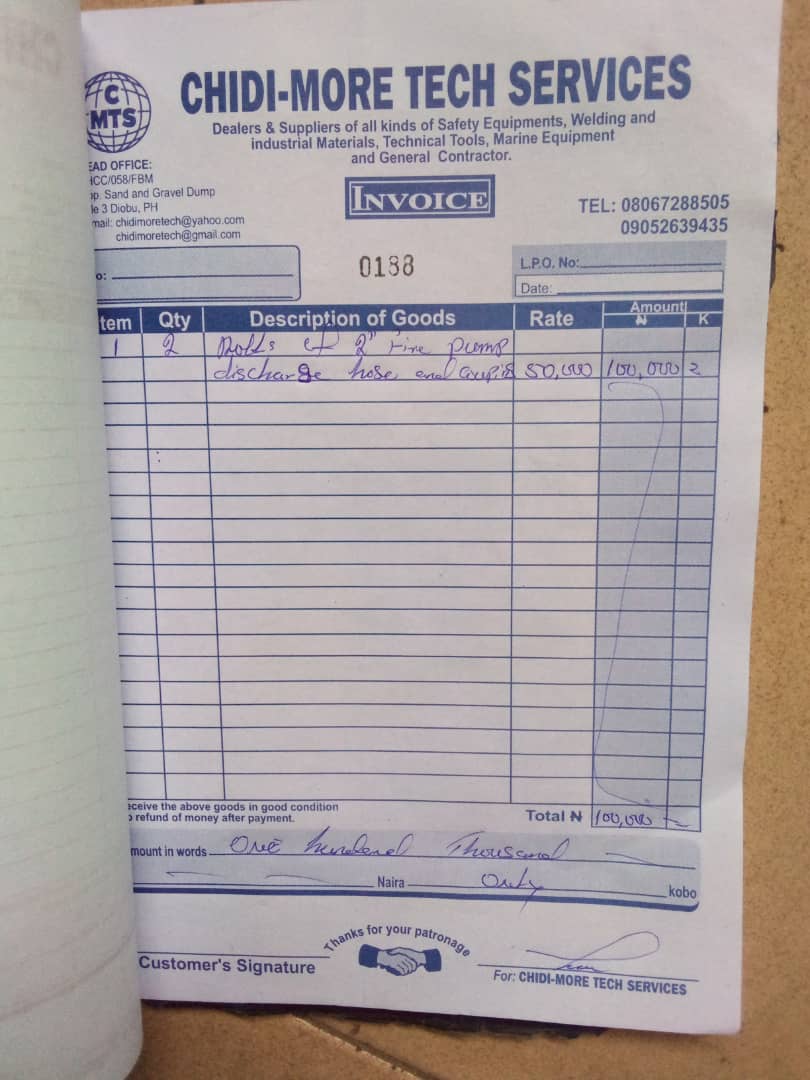 CHIDI-MORE TECH SERVICES
C
MTS
Dealers & Suppliers of all kinds of Safety Equipments, Welding and
industrial Materials, Technical Tools, Marine Equipment
and General Contractor.
EAD OFFICE:
ICC/058/FBM
pp. Sand and Gravel Dump
le 3 Diobu, PH
mail: chidimoretech@yahoo.com
chidimoretech@gmail.com
INVOICE
TEL: 08067288505
09052639435
o:
0188
L.P.O. No:
Date:
tem Qty Description of Goods Rate Amount
₦ K
1 2 of 2" Fire pump
discharge hose and 50,000 100,000 =
eceive the above goods in good condition
o refund of money after payment.
Total ₦ 100,000 =
mount in words One hundred Thousand
Naira Only kobo
Thanks for your patronage
Customer's Signature
For: CHIDI-MORE TECH SERVICES